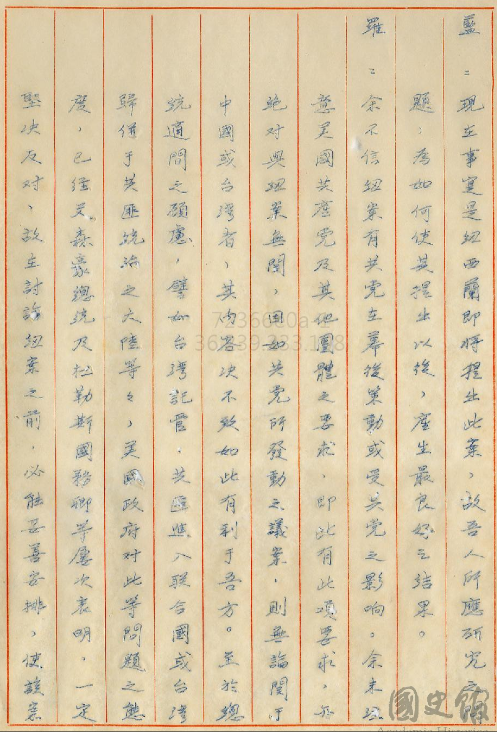 藍：現在事實是紐西蘭即將提出此案，故吾人所應研究之問
題，為如何使其提出以後，產生最良好之結果。
羅：余不信紐案有共党在幕後策動或受共党之影响。余未注
意美國共產党及其他團體之要求，即此有此項要求，亦
絕对與紐案無関，因如共党所發動之議案，則無論関于
中國或台湾者，其內容决不致如此有利于吾方。至於總
統適間之顧慮，譬如台湾託管，共匪進入联合國或台湾
歸併于共匪統治之大陸等々，美國政府对此等問題之態
度，已經艾森豪總統及杜勒斯國務卿等屢次表明，一定
堅决反对，故在討論紐案之前，必能妥善安排，使該案
國史館